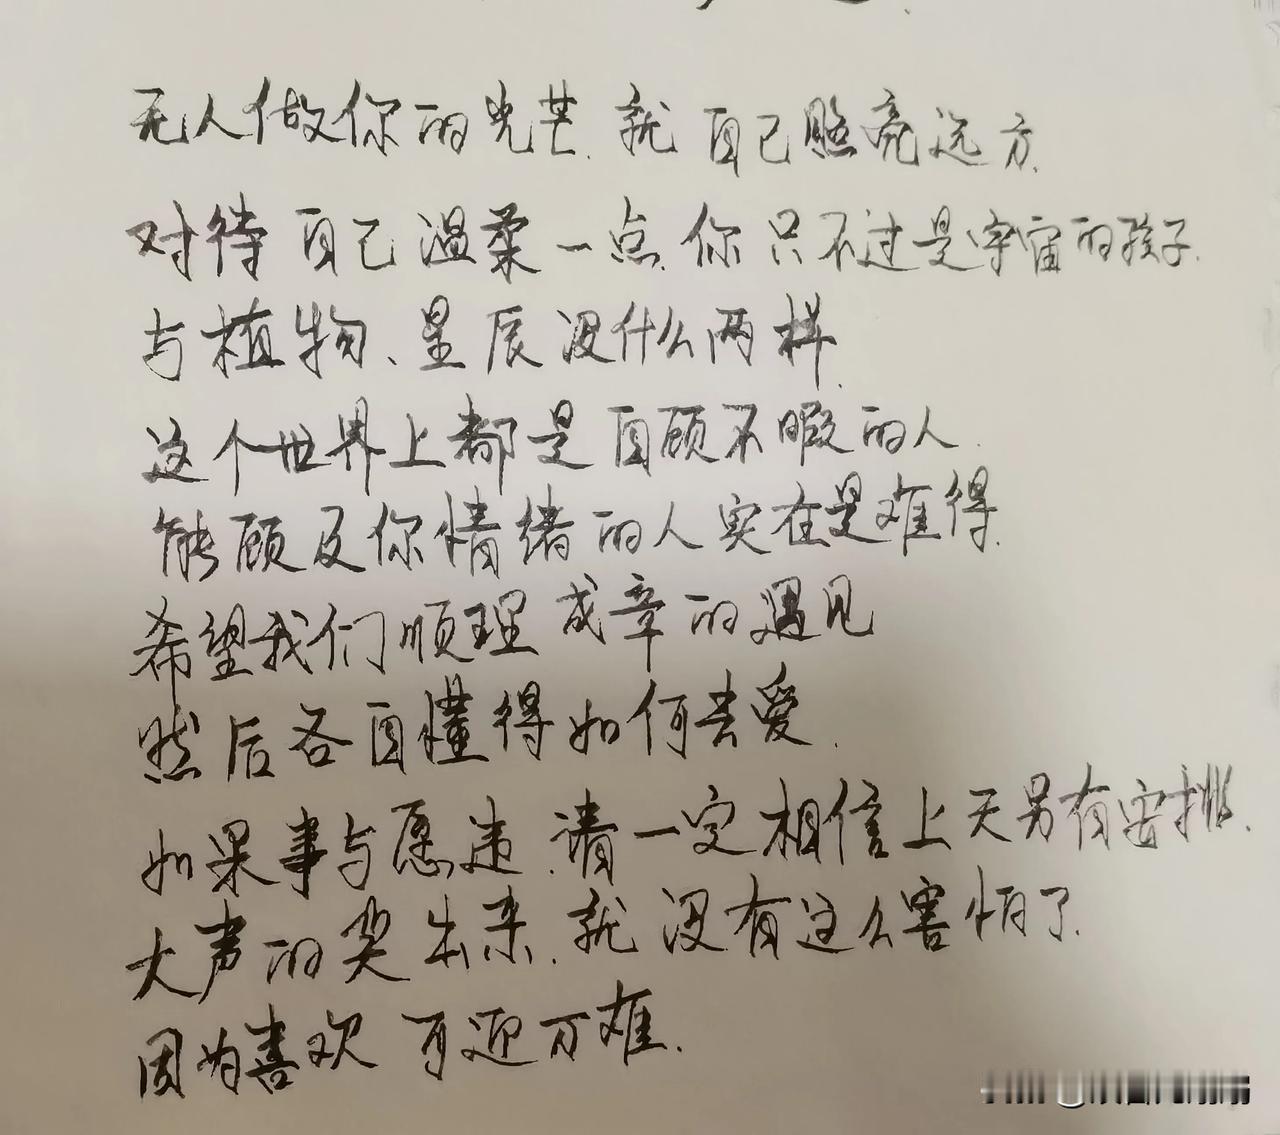 无人做你的光芒.就自己照亮远方.
对待自己温柔一点.你只不过是宇宙的孩子.
与植物、星辰没什么两样.
这个世界上都是自顾不暇的人.
能顾及你情绪的人实在是难得.
希望我们顺理成章的遇见
然后各自懂得如何去爱.
如果事与愿违.请一定相信上天另有安排.
大声的哭出来.就没有这么害怕了.
因为喜欢 可迎万难.